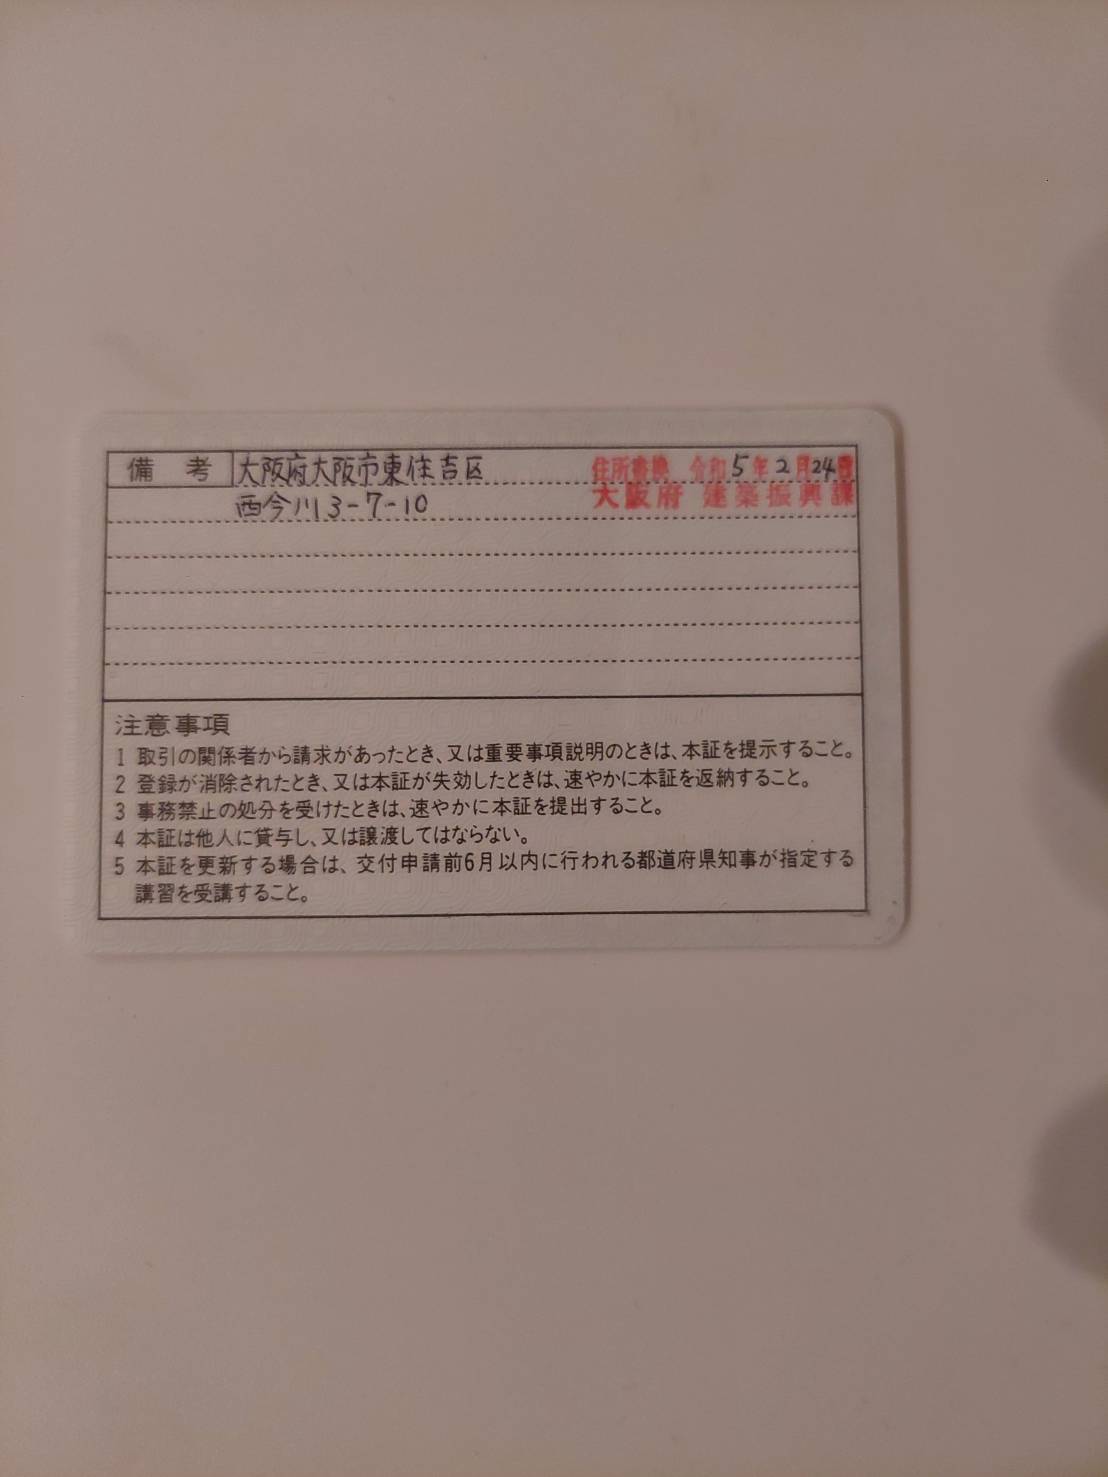 備考 大阪府大阪市東住吉区 住所書換 令和5年2月24日
西今川3-7-10 大阪府 建築振興課
注意事項
1 取引の関係者から請求があったとき、又は重要事項説明のときは、本証を提示すること。
2 登録が消除されたとき、又は本証が失効したときは、速やかに本証を返納すること。
3 事務禁止の処分を受けたときは、速やかに本証を提出すること。
4 本証は他人に貸与し、又は譲渡してはならない。
5 本証を更新する場合は、交付申請前6月以内に行われる都道府県知事が指定する
講習を受講すること。